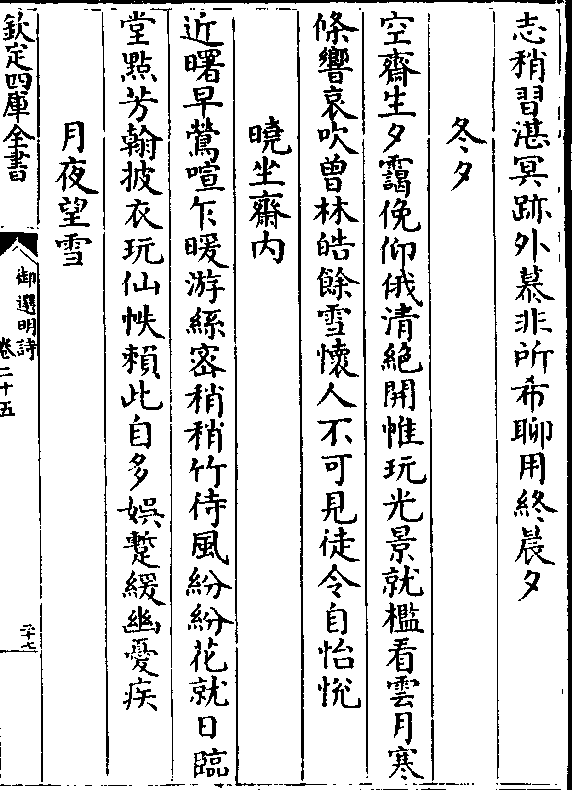 志稍習湛冥跡外慕非所希聊用終晨夕
冬夕
空齋生夕靄俛仰俄清絕開帷玩光景就檻看雲月寒
條響哀吹曾林皓餘雪懷人不可見徒令自怡悅
曉坐齋内
近曙早鶯喧乍暖游絲密稍稍竹侍風紛紛花就日臨
堂點芳翰披衣玩仙帙賴此自多娛蹔緩幽憂疾
月夜望雪
欽定四庫全書
御選明詩
卷二十五
二十七